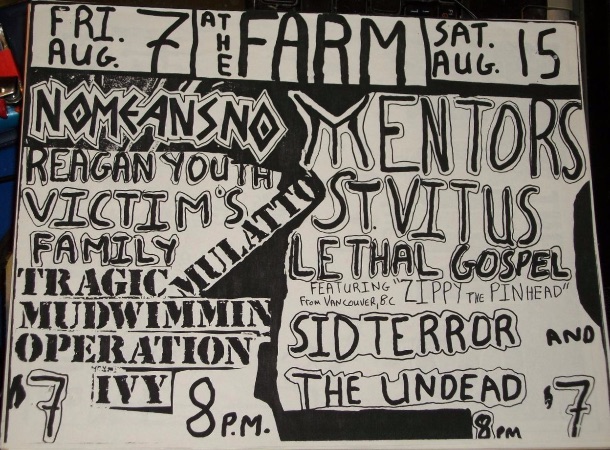 FRI. AUG. 7
AT THE FARM
SAT. AUG. 15
NOMEANSNO
REAGAN YOUTH
VICTIM'S
FAMILY
TRAGIC MULATTO
MUDWIMMIN
OPERATION
IVY
$7
8 P.M.
MENTORS
ST. VITUS
LETHAL GOSPEL
FEATURING "ZIPPY THE PINHEAD"
FROM VANCOUVER, BC
SIDTERROR AND
THE UNDEAD
8 PM
$7